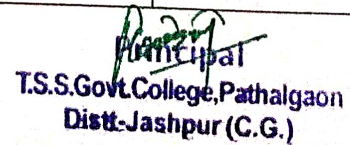 Principal
T.S.S.Govt.College,Pathalgaon
Distt-Jashpur (C.G.)